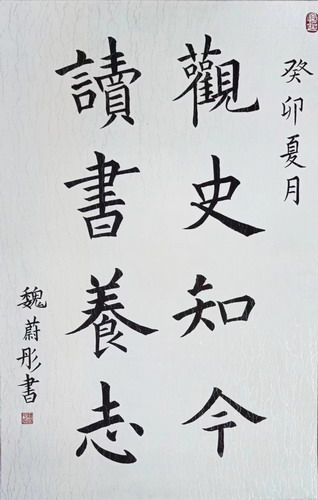 癸卯夏月
觀史知今
讀書養志
魏蔚彤書